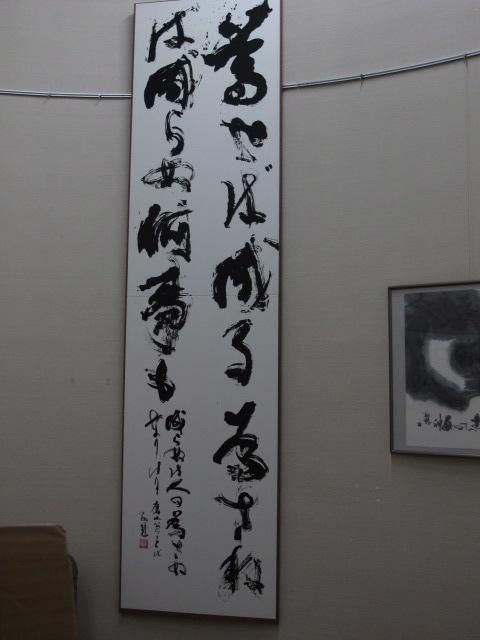 為せば成る為さね
ば成らぬ何事も
成らぬは人の為さぬ
なりけり